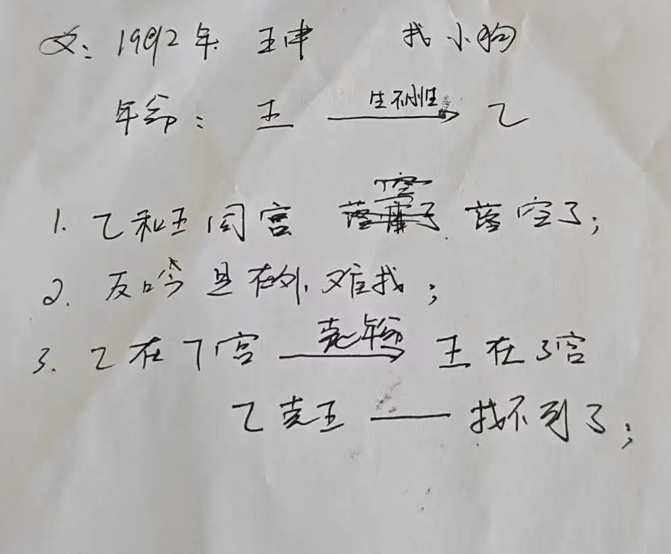 女：1992年 壬申 找小狗
年命：壬 → 乙
1. 乙和壬同宫 落空了；
2. 反吟且在外，难找；
3. 乙在7宫 克年命→ 壬在3宫
乙克壬 —— 找不到了；